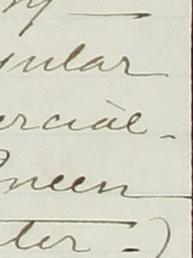 ular
ercial-
Queen
ter.-)